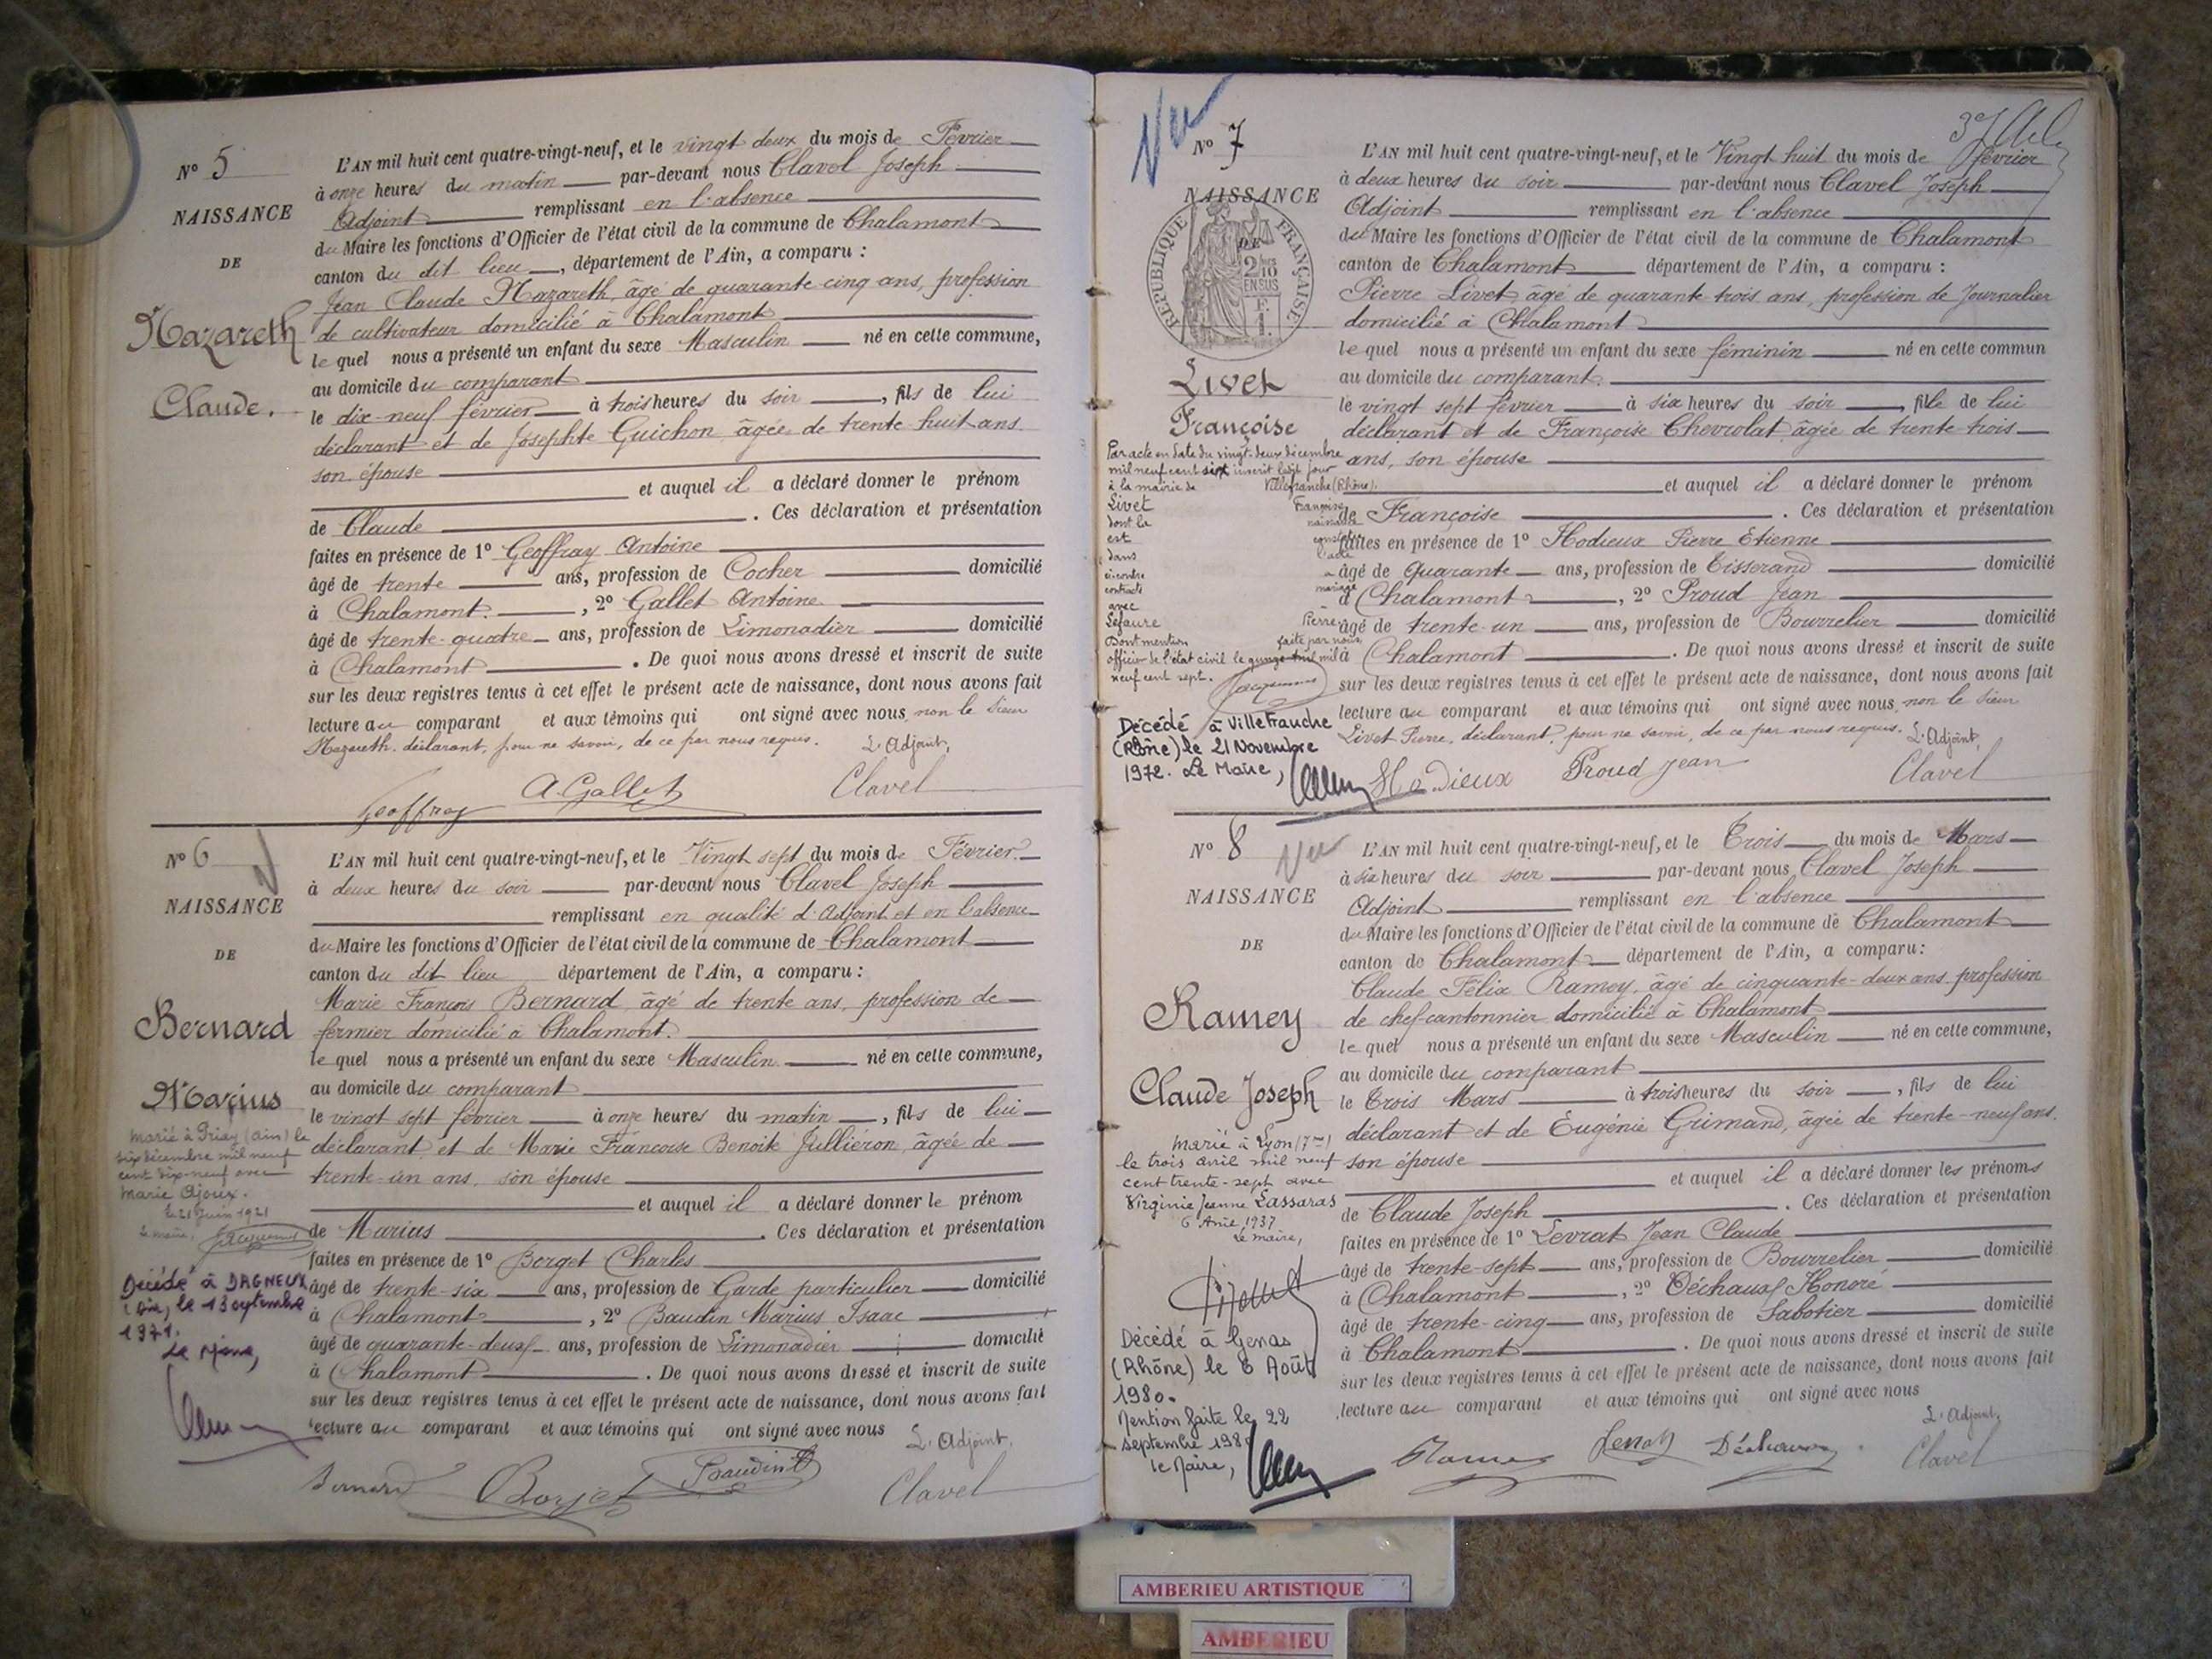 Nº 5
NAISSANCE
DE
Nazareth
Claude.
L'AN mil huit cent quatre-vingt-neuf, et le vingt deux du mois de Février
à onze heures du matin par-devant nous Clavel Joseph
Adjoint remplissant en l'absence
du Maire les fonctions d'Officier de l'état civil de la commune de Chalamont
canton du dit lieu, département de l'Ain, a comparu :
Jean Claude Nazareth, âgé de quarante-cinq ans, profession
de cultivateur domicilié à Chalamont
lequel nous a présenté un enfant du sexe Masculin né en cette commune,
au domicile du comparant
le dix-neuf février à trois heures du soir, fils de lui
déclarant et de Josephte Guichon âgée de trente huit ans
son épouse
et auquel il a déclaré donner le prénom
de Claude. Ces déclaration et présentation
faites en présence de 1º Geoffray Antoine
âgé de trente ans, profession de Cocher domicilié
à Chalamont., 2º Gallet Antoine
âgé de trente-quatre ans, profession de Limonadier domicilié
à Chalamont. De quoi nous avons dressé et inscrit de suite
sur les deux registres tenus à cet effet le présent acte de naissance, dont nous avons fait
lecture au comparant et aux témoins qui ont signé avec nous, non le sieur
Nazareth, déclarant, pour ne savoir, de ce par nous requis. L'Adjoint,
Geoffray A. Gallet Clavel
Nº 6
NAISSANCE
DE
Bernard
Marius
Marié à Priay (Ain) le
six décembre mil neuf
cent dix-neuf avec
Marie Ajoux.
Le 21 Juin 1921
Le maire,
Décédé à DAGNEUX
(Ain) le 13 septembre
1971.
Le Maire,
L'AN mil huit cent quatre-vingt-neuf, et le Vingt sept du mois de Février
à deux heures du soir par-devant nous Clavel Joseph
remplissant en qualité d'Adjoint et en l'absence
du Maire les fonctions d'Officier de l'état civil de la commune de Chalamont
canton du dit lieu département de l'Ain, a comparu :
Marie François Bernard âgé de trente ans, profession de
fermier domicilié à Chalamont.
lequel nous a présenté un enfant du sexe Masculin né en cette commune,
au domicile du comparant
le vingt sept février à onze heures du matin, fils de lui
déclarant et de Marie Françoise Benoite Jullieron âgée de
trente-un ans, son épouse
et auquel il a déclaré donner le prénom
de Marius. Ces déclaration et présentation
faites en présence de 1º Borget Charles
âgé de trente-six ans, profession de Garde particulier domicilié
à Chalamont, 2º Baudin Marius Isaac
âgé de quarante-deux ans, profession de Limonadier domicilié
à Chalamont. De quoi nous avons dressé et inscrit de suite
sur les deux registres tenus à cet effet le présent acte de naissance, dont nous avons fait
lecture au comparant et aux témoins qui ont signé avec nous L'Adjoint,
Bernard Borget Baudin Clavel
Vu
Nº 7
NAISSANCE
DE
RÉPUBLIQUE FRANÇAISE
2/10
EN SUS
Livet
Françoise
Par acte en date du vingt-deux décembre
mil neuf cent six inscrit ledit jour
à la mairie de Villefranche (Rhône).
Livet Françoise
dont la naissance
est constatée
dans l'acte
ci-contre a
contracté mariage
avec
Lefaure Pierre
Dont mention faite par nous,
officier de l'état civil le mil
neuf cent sept.
Décédé à Villefranche
(Rhône) le 21 Novembre
1972. Le Maire,
L'AN mil huit cent quatre-vingt-neuf, et le Vingt huit du mois de février
à deux heures du soir par-devant nous Clavel Joseph
Adjoint remplissant en l'absence
du Maire les fonctions d'Officier de l'état civil de la commune de Chalamont
canton de Chalamont département de l'Ain, a comparu :
Pierre Livet âgé de quarante trois ans, profession de Journalier
domicilié à Chalamont
lequel nous a présenté un enfant du sexe féminin né en cette commun
au domicile du comparant
le vingt sept février à six heures du soir, fille de lui
déclarant et de Françoise Chevrolat âgée de trente trois
ans, son épouse
et auquel il a déclaré donner le prénom
de Françoise. Ces déclaration et présentation
faites en présence de 1º Hodieux Pierre Etienne
âgé de Quarante ans, profession de Tisserand domicilié
à Chalamont, 2º Proud Jean
âgé de trente-un ans, profession de Bourrelier domicilié
à Chalamont. De quoi nous avons dressé et inscrit de suite
sur les deux registres tenus à cet effet le présent acte de naissance, dont nous avons fait
lecture au comparant et aux témoins qui ont signé avec nous, non le sieur
Livet Pierre, déclarant, pour ne savoir, de ce par nous requis. L'Adjoint,
Hodieux Proud Jean Clavel
Nº 8
Vu
NAISSANCE
DE
Ramey
Claude Joseph
Marié à Lyon (7me)
le trois avril mil neuf
cent trente-sept avec
Virginie Jeanne Lassaras
6 Avril 1937
Le maire,
Décédé à Genas
(Rhône) le 6 Août
1980.
Mention faite le 22
septembre 1980
le Maire,
L'AN mil huit cent quatre-vingt-neuf, et le Trois du mois de Mars
à six heures du soir par-devant nous Clavel Joseph
Adjoint remplissant en l'absence
du Maire les fonctions d'Officier de l'état civil de la commune de Chalamont
canton de Chalamont département de l'Ain, a comparu :
Claude Félix Ramey, âgé de cinquante-deux ans profession
de chef-cantonnier domicilié à Chalamont
lequel nous a présenté un enfant du sexe Masculin né en cette commune,
au domicile du comparant
le Trois Mars à trois heures du soir, fils de lui
déclarant et de Eugénie Grimand, âgée de trente-neuf ans.
son épouse
et auquel il a déclaré donner les prénoms
de Claude Joseph. Ces déclaration et présentation
faites en présence de 1º Levrat Jean Claude
âgé de trente-sept ans, profession de Bourrelier domicilié
à Chalamont, 2º Déchaux Honoré
âgé de trente-cinq ans, profession de Sabotier domicilié
à Chalamont. De quoi nous avons dressé et inscrit de suite
sur les deux registres tenus à cet effet le présent acte de naissance, dont nous avons fait
lecture au comparant et aux témoins qui ont signé avec nous
L'Adjoint,
Ramey Levrat Déchaux Clavel
AMBERIEU ARTISTIQUE
AMBERIEU